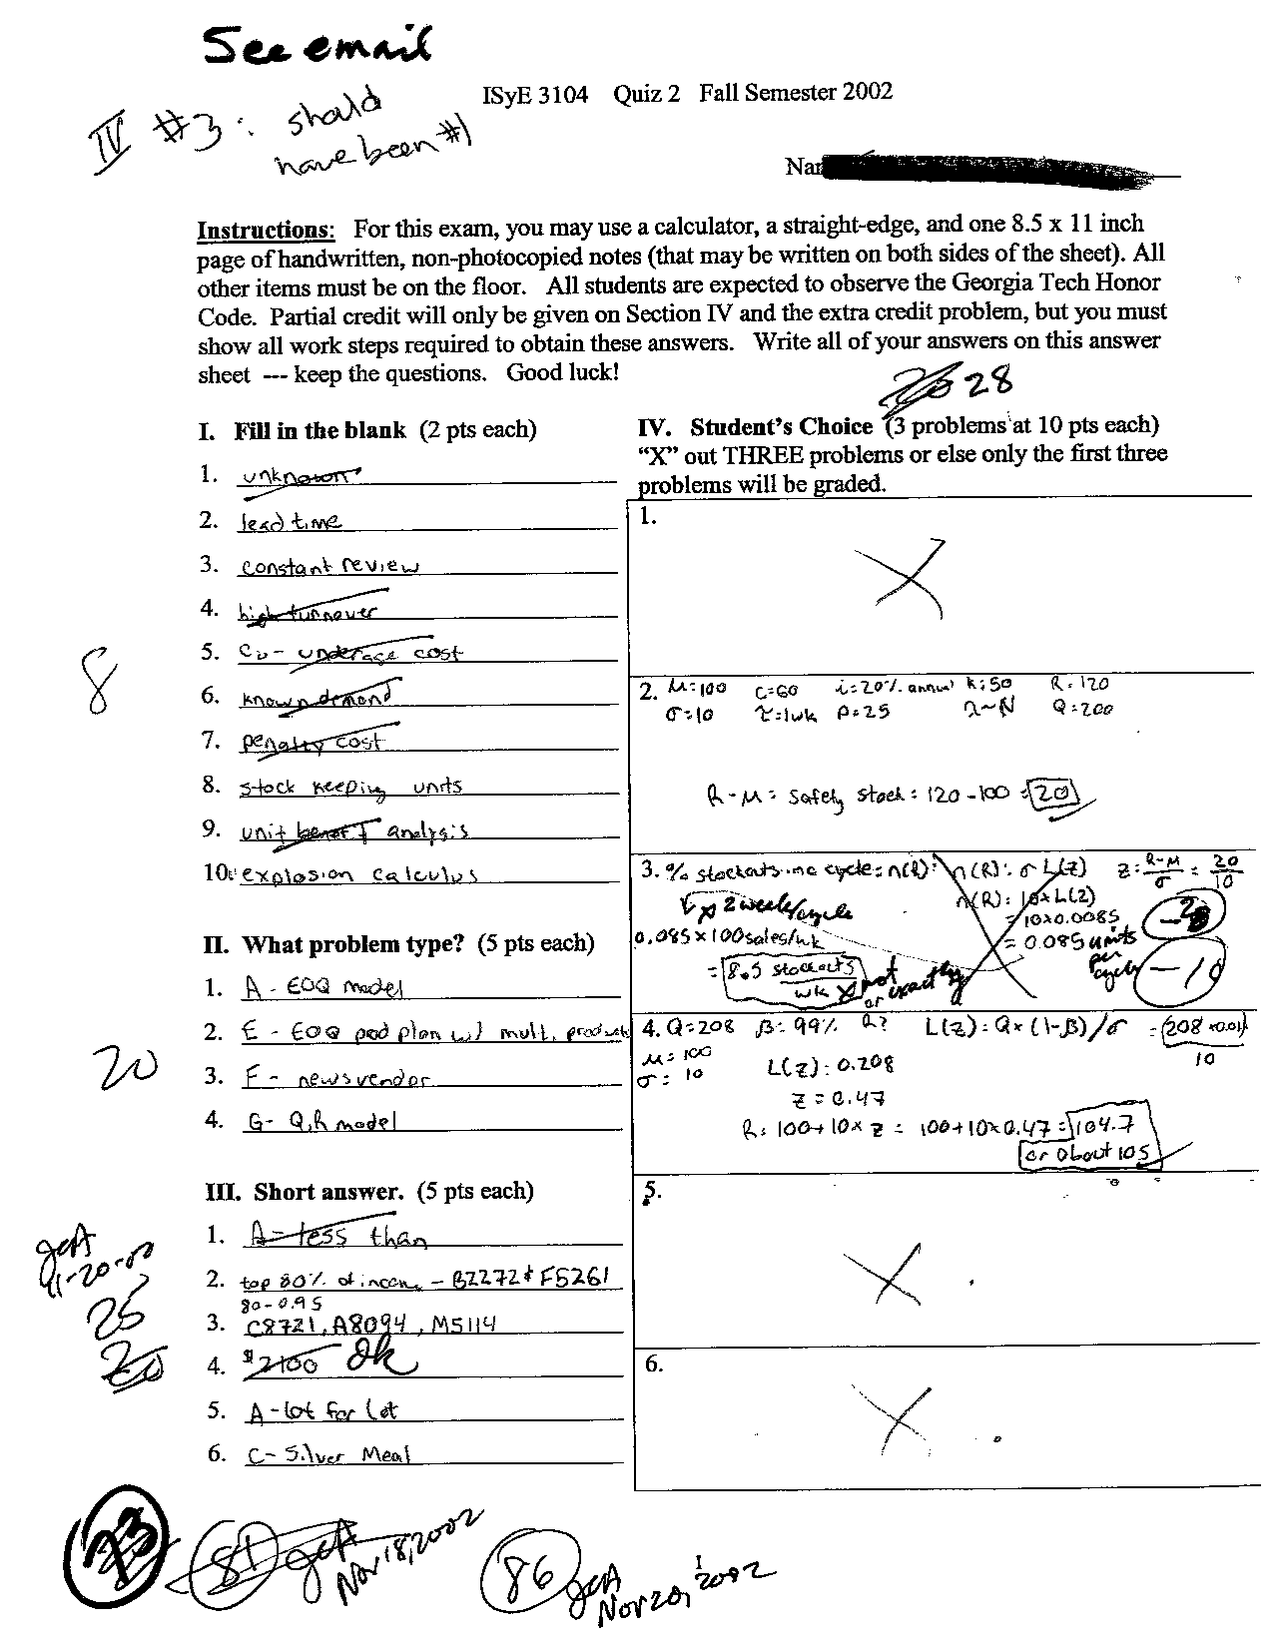 See email
IV #3: should
have been #1
ISyE 3104 Quiz 2 Fall Semester 2002
Nam
Instructions: For this exam, you may use a calculator, a straight-edge, and one 8.5 x 11 inch
page of handwritten, non-photocopied notes (that may be written on both sides of the sheet). All
other items must be on the floor. All students are expected to observe the Georgia Tech Honor
Code. Partial credit will only be given on Section IV and the extra credit problem, but you must
show all work steps required to obtain these answers. Write all of your answers on this answer
sheet --- keep the questions. Good luck!
I. Fill in the blank (2 pts each)
1. unknown
2. lead time
3. constant review
4. high turnover
5. Cu - underage cost
6. known demand
7. penalty cost
8. stock keeping units
9. unit benefit analysis
10. explosion calculus
8
II. What problem type? (5 pts each)
1. A - EOQ model
2. E - EOQ prod plan w/ mult. products
3. F - newsvendor
4. G - Q,R model
20
III. Short answer. (5 pts each)
1. A - less than
2. top 80% of income - BZ272 & F5261
80-0.95
3. C8721, A8094, M5114
4. $2100 Ok
5. A - lot for lot
6. C - Silver Meal
11-20-02
25
20
28
IV. Student's Choice (3 problems at 10 pts each)
"X" out THREE problems or else only the first three
problems will be graded.
1.
2. μ=100 C=60 i=20% annual K=50 R=120
σ=10 τ=1wk p=25 λ~N Q=200
R-μ = safety stock = 120-100 = 20
3. % stockouts one cycle = n(R) = n(R) = σ L(z) z = R-μ / σ = 20 / 10
n(R) = 10×L(z)
x 2 weeks/cycle
= 10×0.0085
-2
0.085×100 sales/wk
= 0.085 units
per
cycle
= 8.5 stockouts / wk
not
or exactly
-10
4. Q=208 β=99% R? L(z) = Q×(1-β)/σ = (208×0.01) / 10
μ=100
σ=10
L(z) = 0.208
z = 0.47
R = 100+10×z = 100+10×0.47 = 104.7
or about 105
5.
6.
73
81
Nov 18, 2002
86
Nov 20, 2002